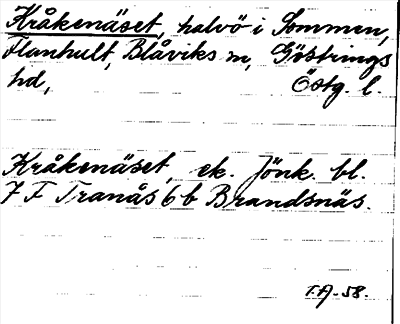 Kråkenäset, halvö i Sommen,
Flanhult, Blåviks sn, Göstrings
hd, Östg. l.
Kråkenäset, ek. Jönk. bl.
7 F Tranås 6 b Brandsnäs.
T.A. 58.